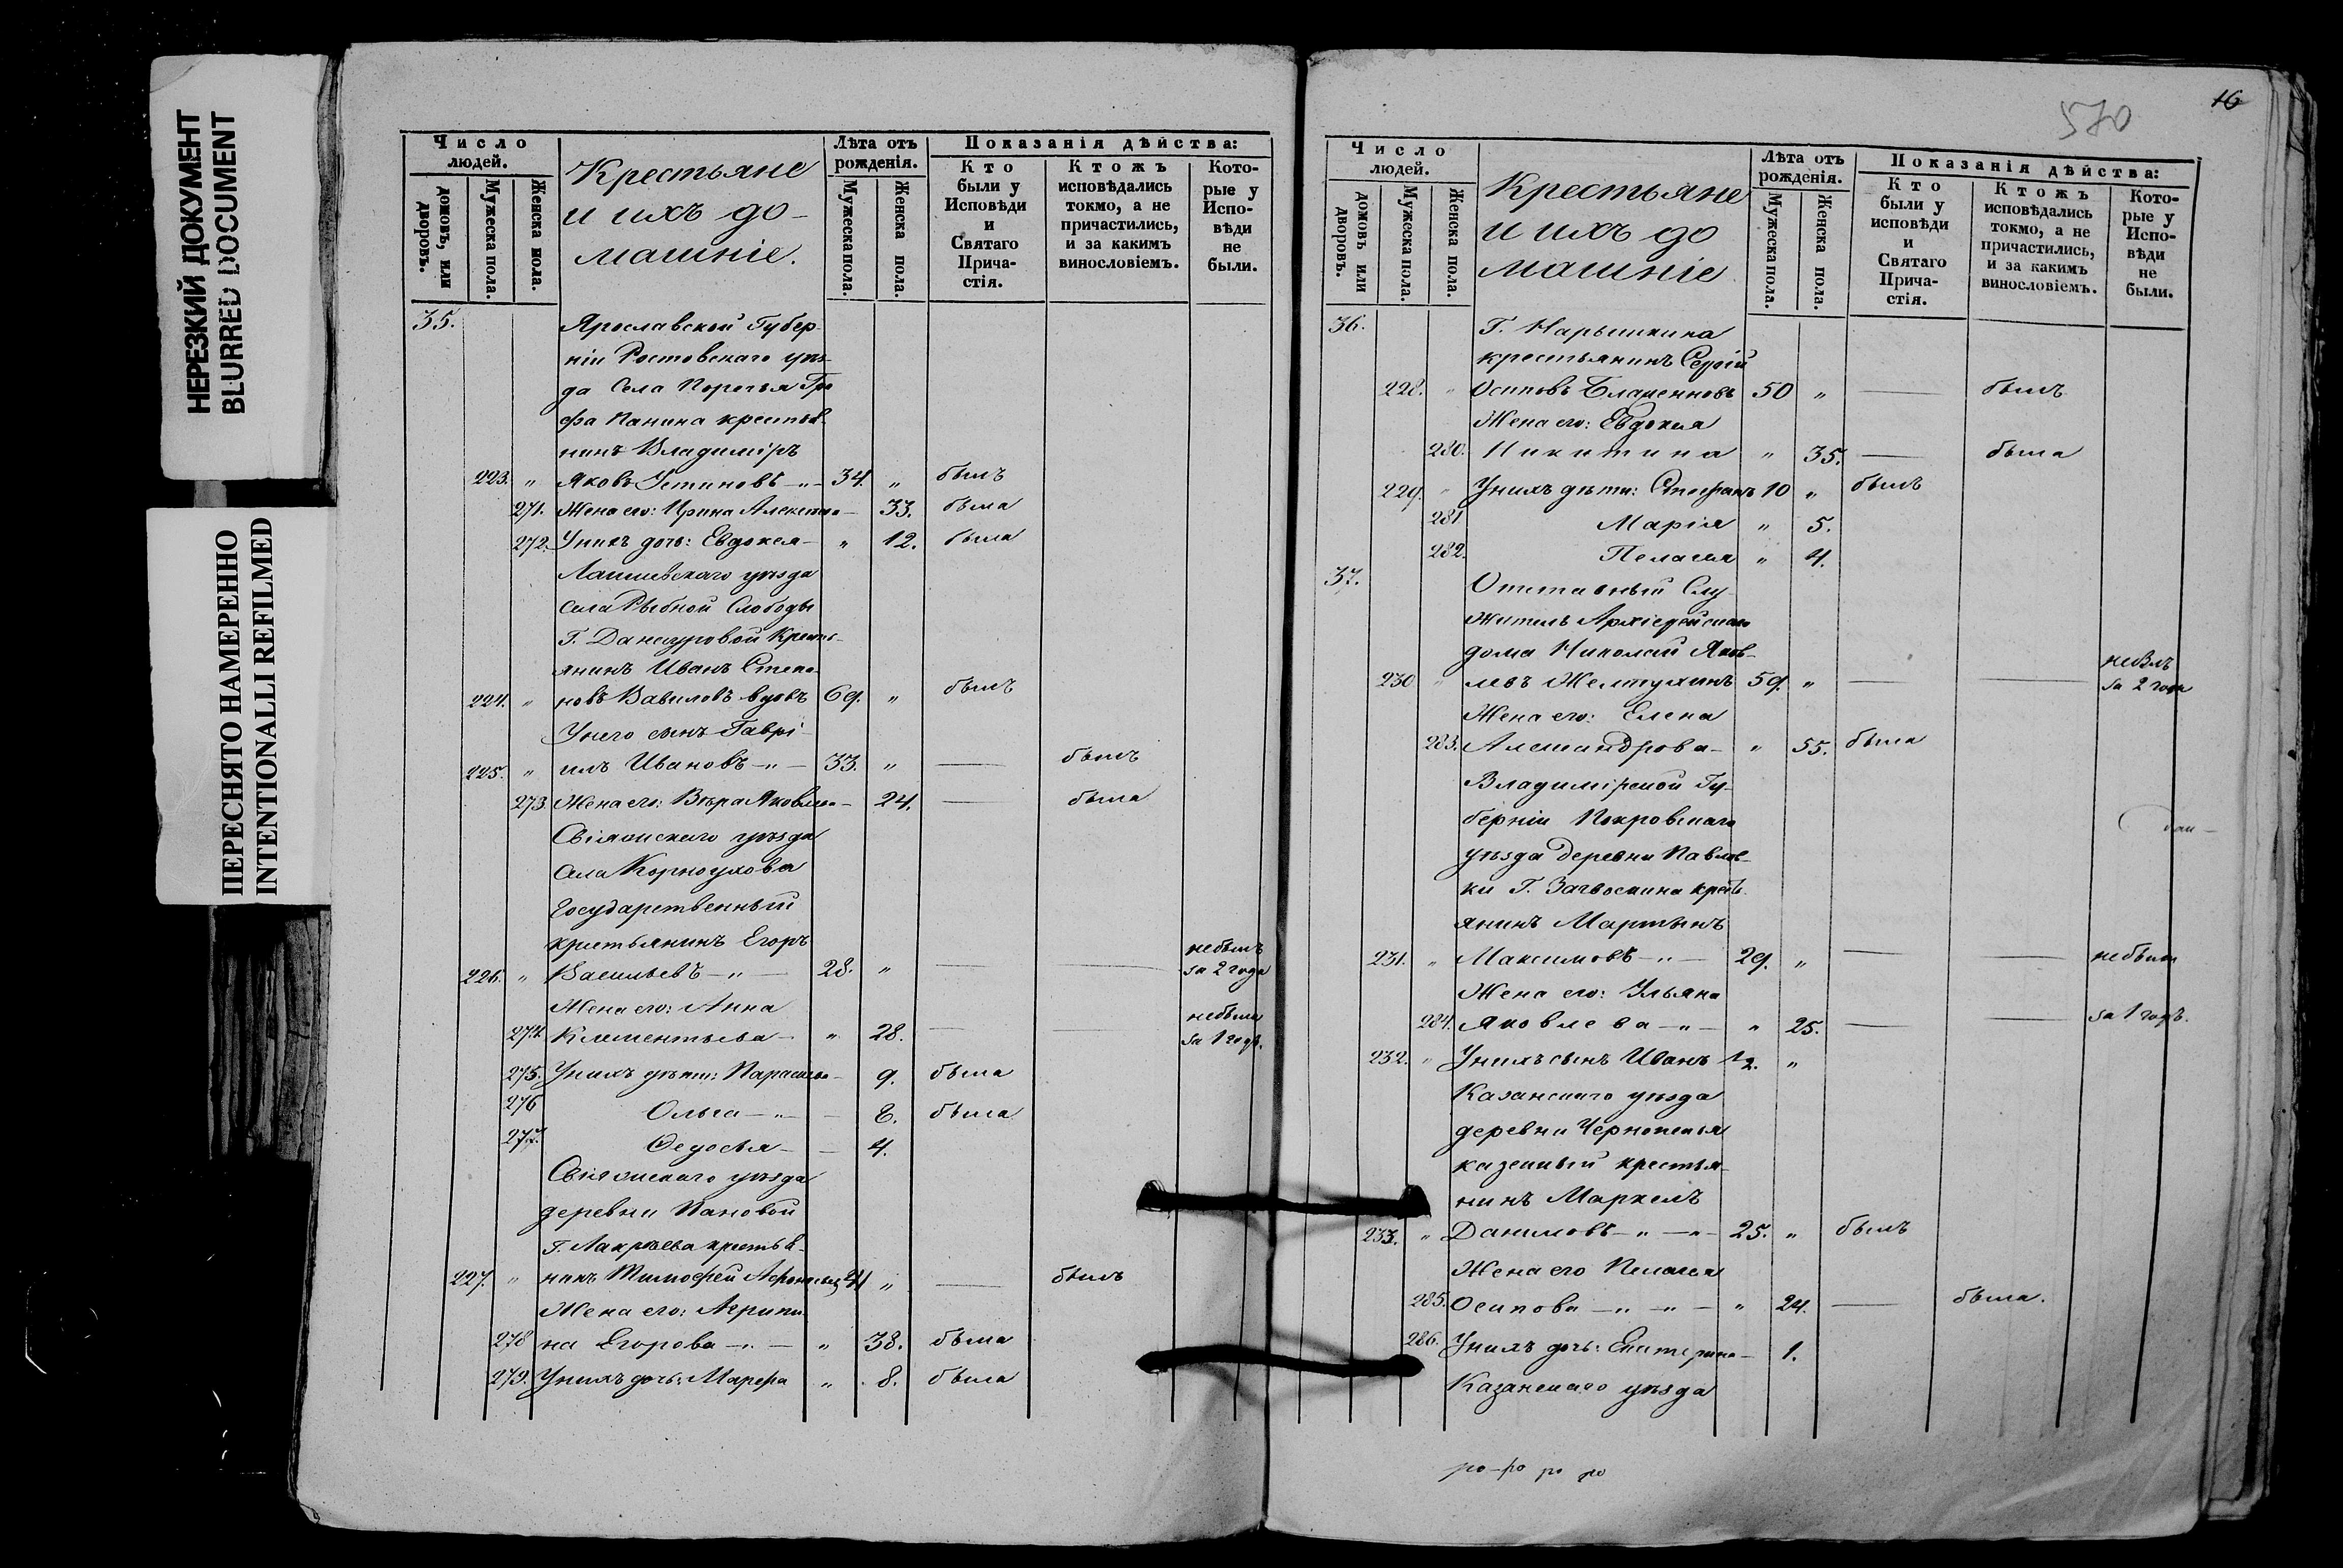 НЕРЕЗКИЙ ДОКУМЕНТ
BLURRED DOCUMENT
ПЕРЕСНЯТО НАМЕРЕННО
INTENTIONALLI REFILMED
Число людей.
домовъ, или дворовъ.
Мужеска пола.
Женска пола.
Крестьяне
и ихъ до-
машніе.
Лѣта отъ рожденія.
Мужеска пола.
Женска пола.
Показанія дѣйства:
Кто были у Исповѣди и Святаго Прича-стія.
Ктожъ исповѣдались токмо, а не причастились, и за какимъ винословіемъ.
Кото-рые у Испо-вѣди не были.
35. Ярославской Губер-
ніи Ростовскаго уѣз-
да Села Поречья Гра
фа Панина крестья-
нинъ Владиміръ
223. " Яковъ Устиновъ -"- 34. " былъ
271. Жена его: Ирина 33. была
272. У нихъ дочь: Евдокея - " 12. была
Лаишевскаго уѣзда
Села Рыбной Слободы
Г. Крешь-
янинъ Иванъ Степа-
224. " новъ Вавиловъ вдовъ 69. " былъ
У него сынъ Гаврі-
225. " илъ Ивановъ -"- 33. " — былъ
273 Жена его: Вѣра Яковлева - 24. — была
Свіяжскаго уѣзда
Села Корноухова
Государственный
крестьянинъ Егоръ
226. " Васильевъ -"- 28. " — — небылъ за 2 года
Жена его: Анна
274 Климентьева - " 28. — — небыла за 1 годъ.
275. У нихъ дѣти: Парасковья - 9. была
276 Ольга -"- - 6. была
277. Федосья - - 4.
Свіяжскаго уѣзда
деревни Пановой
Г. крестья-
227. " нинъ Тимофей 41 " — былъ
Жена его: Агрипи-
278 на Егорова -"- " 38. была
279. У нихъ дочь: Марфа " 8. была
570
16
Число людей.
домовъ или дворовъ.
Мужеска пола.
Женска пола.
Крестьяне
и ихъ до
машніе
Лѣта отъ рожденія.
Мужеска пола.
Женска пола.
Показанія дѣйства:
Кто были у исповѣди и Святаго Прича-стія.
Ктожъ исповѣдались токмо, а не причастились, и за какимъ винословіемъ.
Кото-рые у Испо-вѣди не были.
36. Г. Нарышкина
крестьянинъ Сергій
228. " Осиповъ 50 " — былъ
Жена его: Евдокея
280. Никитина " 35. — была
229. " У нихъ дѣти: Стефанъ 10 " былъ
281 Марія " 5.
282. Пелагея " 4.
37. Отставный Слу-
житель Архіерейскаго
дома Николай Яков-
230 " левъ Желтухинъ 59. " — — небылъ за 2 года
Жена его: Елена
283. Александрова - " 55. была
Владимірской Гу-
берніи Покровскаго
уѣзда деревни Павлов-
ки Г. Загвоскина крест-
янинъ Мартынъ
231. " Максимовъ -"- 29. " — — небыли
Жена его: Ульяна
284. Яковлева -"- " 25. — — за 1 годъ.
232. " У нихъ сынъ Иванъ 1/2. "
Казанскаго уѣзда
деревни
казенный крестья-
нинъ Маркелъ
233. " Даниловъ -"- -"- 25. " былъ
Жена его Пелагея
285. Осипова -"- -"- " 24. — была.
286. У нихъ дочь: Екатерина - 1.
Казанскаго уѣзда
ро-ро ро ро